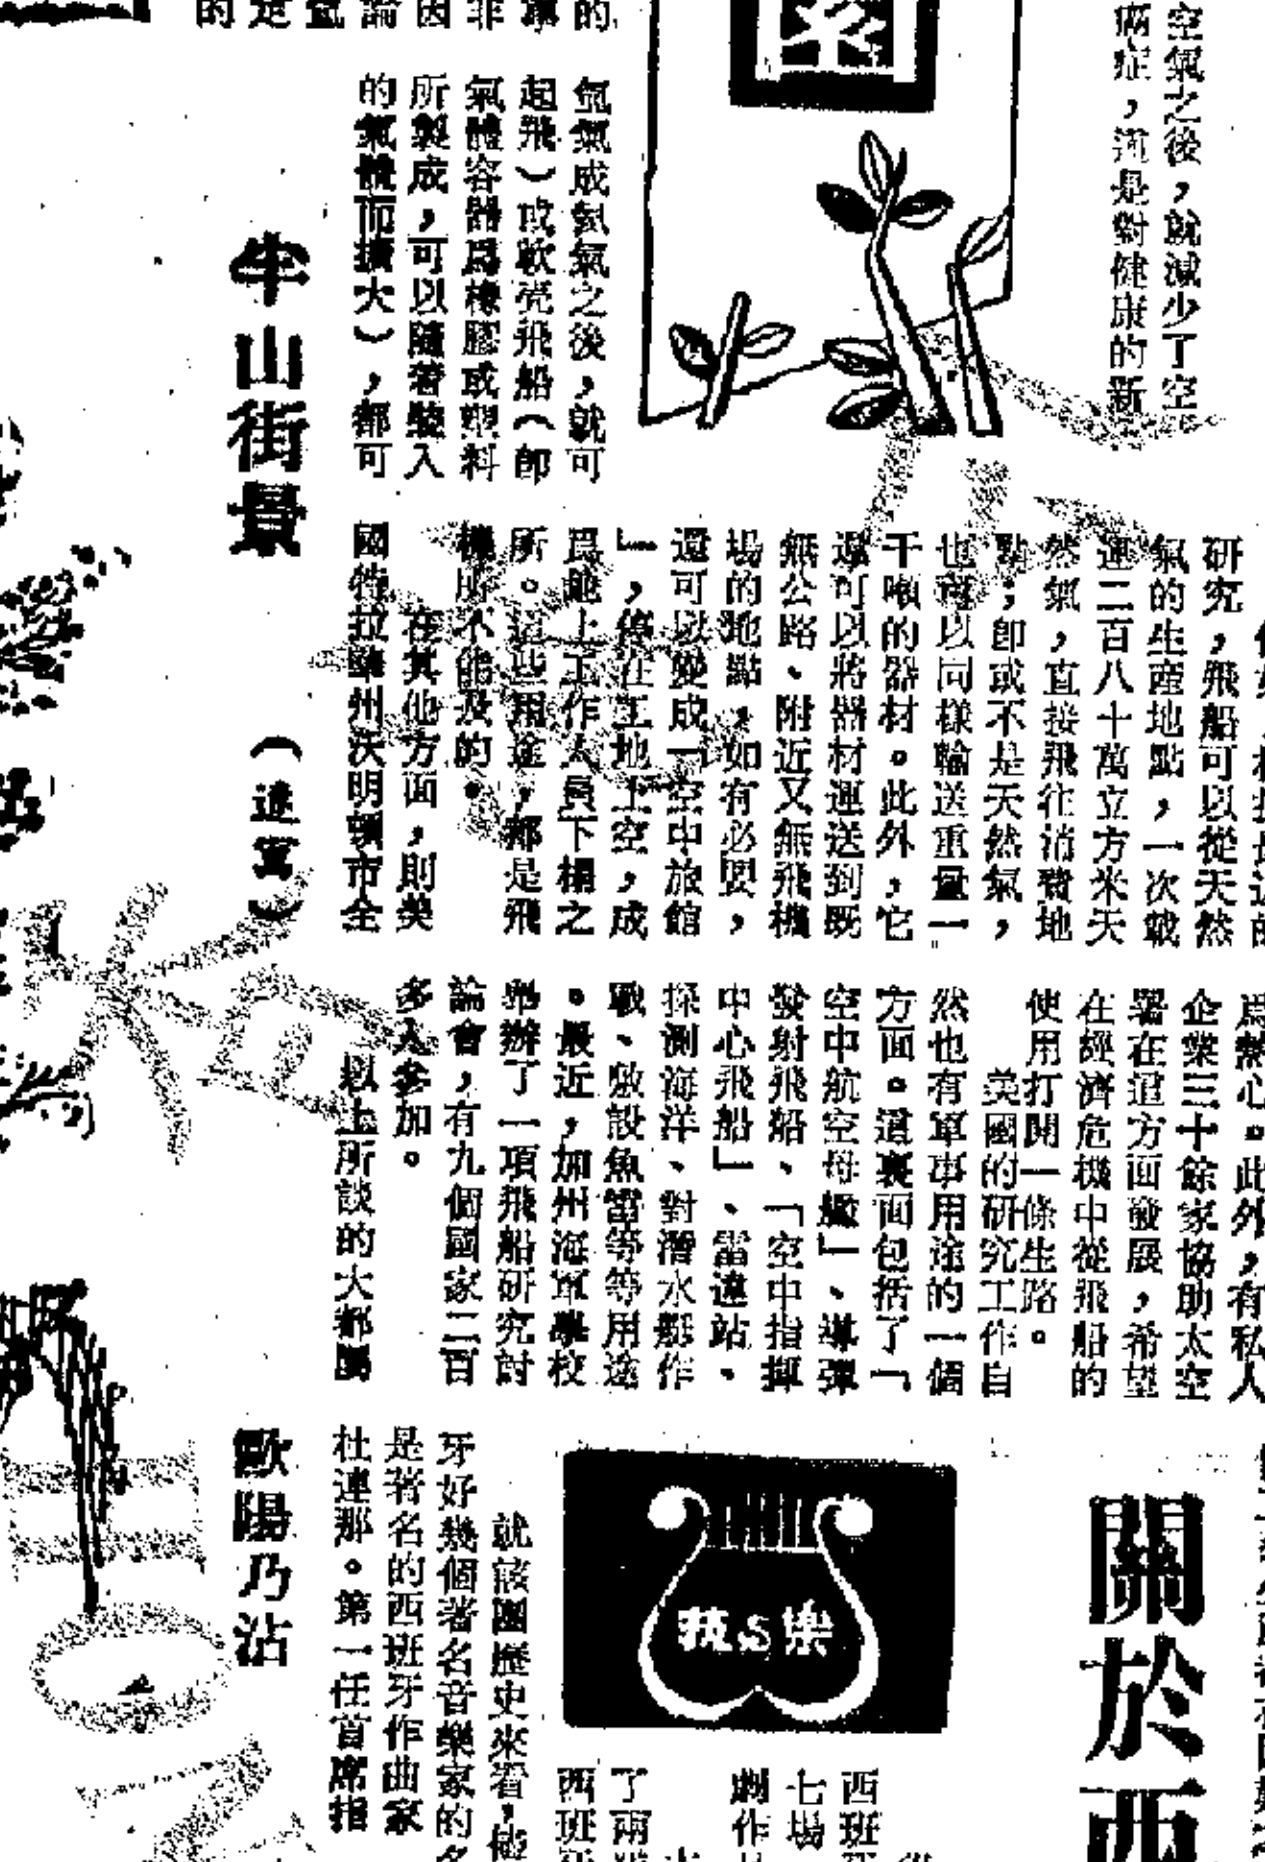 空氣之後，就減少了空
症，這是對健康的新
氫氣成氦氣之後，就可
起飛）或軟壳飛船（卽
氣體容器爲橡膠或塑料
所製成，可以隨着裝入
的氣體而擴大），都可
研究，飛船可以從天然
氣的生產地點，一次載
運二百八十萬立方米天
然氣，直接飛往消費地
點；卽或不是天然氣，
也可以同樣輸送重量一
千噸的器材。此外，它
還可以將器材運送到既
無公路、附近又無飛機
場的地點，如有必要，
還可以變成「空中旅館
」，停在工地上空，成
爲地上工作人員下榻之
所。這些用途，都是飛
機所不能及的。
在其他方面，則美
國特拉華州沃明頓市全
爲熱心。此外，有私人
企業三十餘家協助太空
署在這方面發展，希望
在經濟危機中從飛船的
使用打開一條生路。
美國的研究工作自
然也有軍事用途的一個
方面。這裏面包括了「
空中航空母艦」、導彈
發射飛船、「空中指揮
中心飛船」、雷達站、
探測海洋、對潛水艇作
戰、敷設魚雷等等用途
。最近，加州海軍學校
舉辦了一項飛船研究討
論會，有九個國家二百
多人參加。
以上所談的大都屬
牛山街景
（速寫）
歐陽乃沾
關於西
藝S樂
西班
七場
劇作
了兩
西班
就該團歷史來看，
牙好幾個著名音樂家的名
是著名的西班牙作曲家
杜連那。第一任首席指